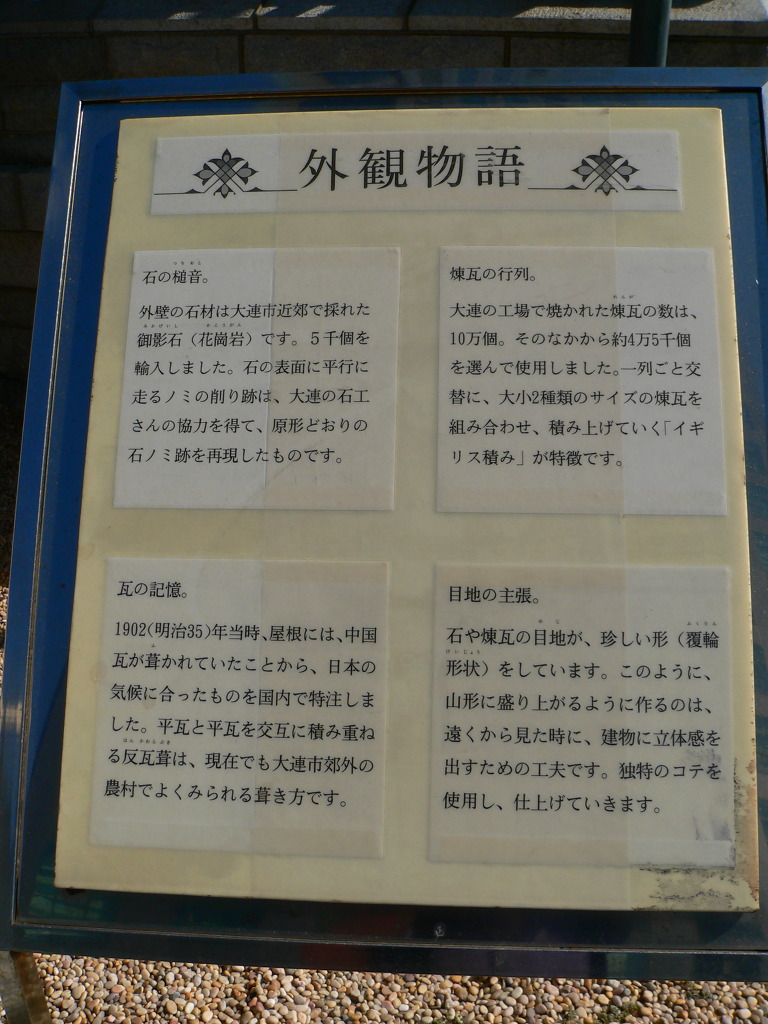 外観物語
石の槌音。
外壁の石材は大連市近郊で採れた
御影石（花崗岩）です。５千個を
輸入しました。石の表面に平行に
走るノミの削り跡は、大連の石工
さんの協力を得て、原形どおりの
石ノミ跡を再現したものです。
煉瓦の行列。
大連の工場で焼かれた煉瓦の数は、
10万個。そのなかから約4万5千個
を選んで使用しました。一列ごと交
替に、大小2種類のサイズの煉瓦を
組み合わせ、積み上げていく「イギ
リス積み」が特徴です。
瓦の記憶。
1902（明治35）年当時、屋根には、中国
瓦が葺かれていたことから、日本の
気候に合ったものを国内で特注しま
した。平瓦と平瓦を交互に積み重ね
る反瓦葺は、現在でも大連市郊外の
農村でよくみられる葺き方です。
目地の主張。
石や煉瓦の目地が、珍しい形（覆輪
形状）をしています。このように、
山形に盛り上がるように作るのは、
遠くから見た時に、建物に立体感を
出すための工夫です。独特のコテを
使用し、仕上げていきます。